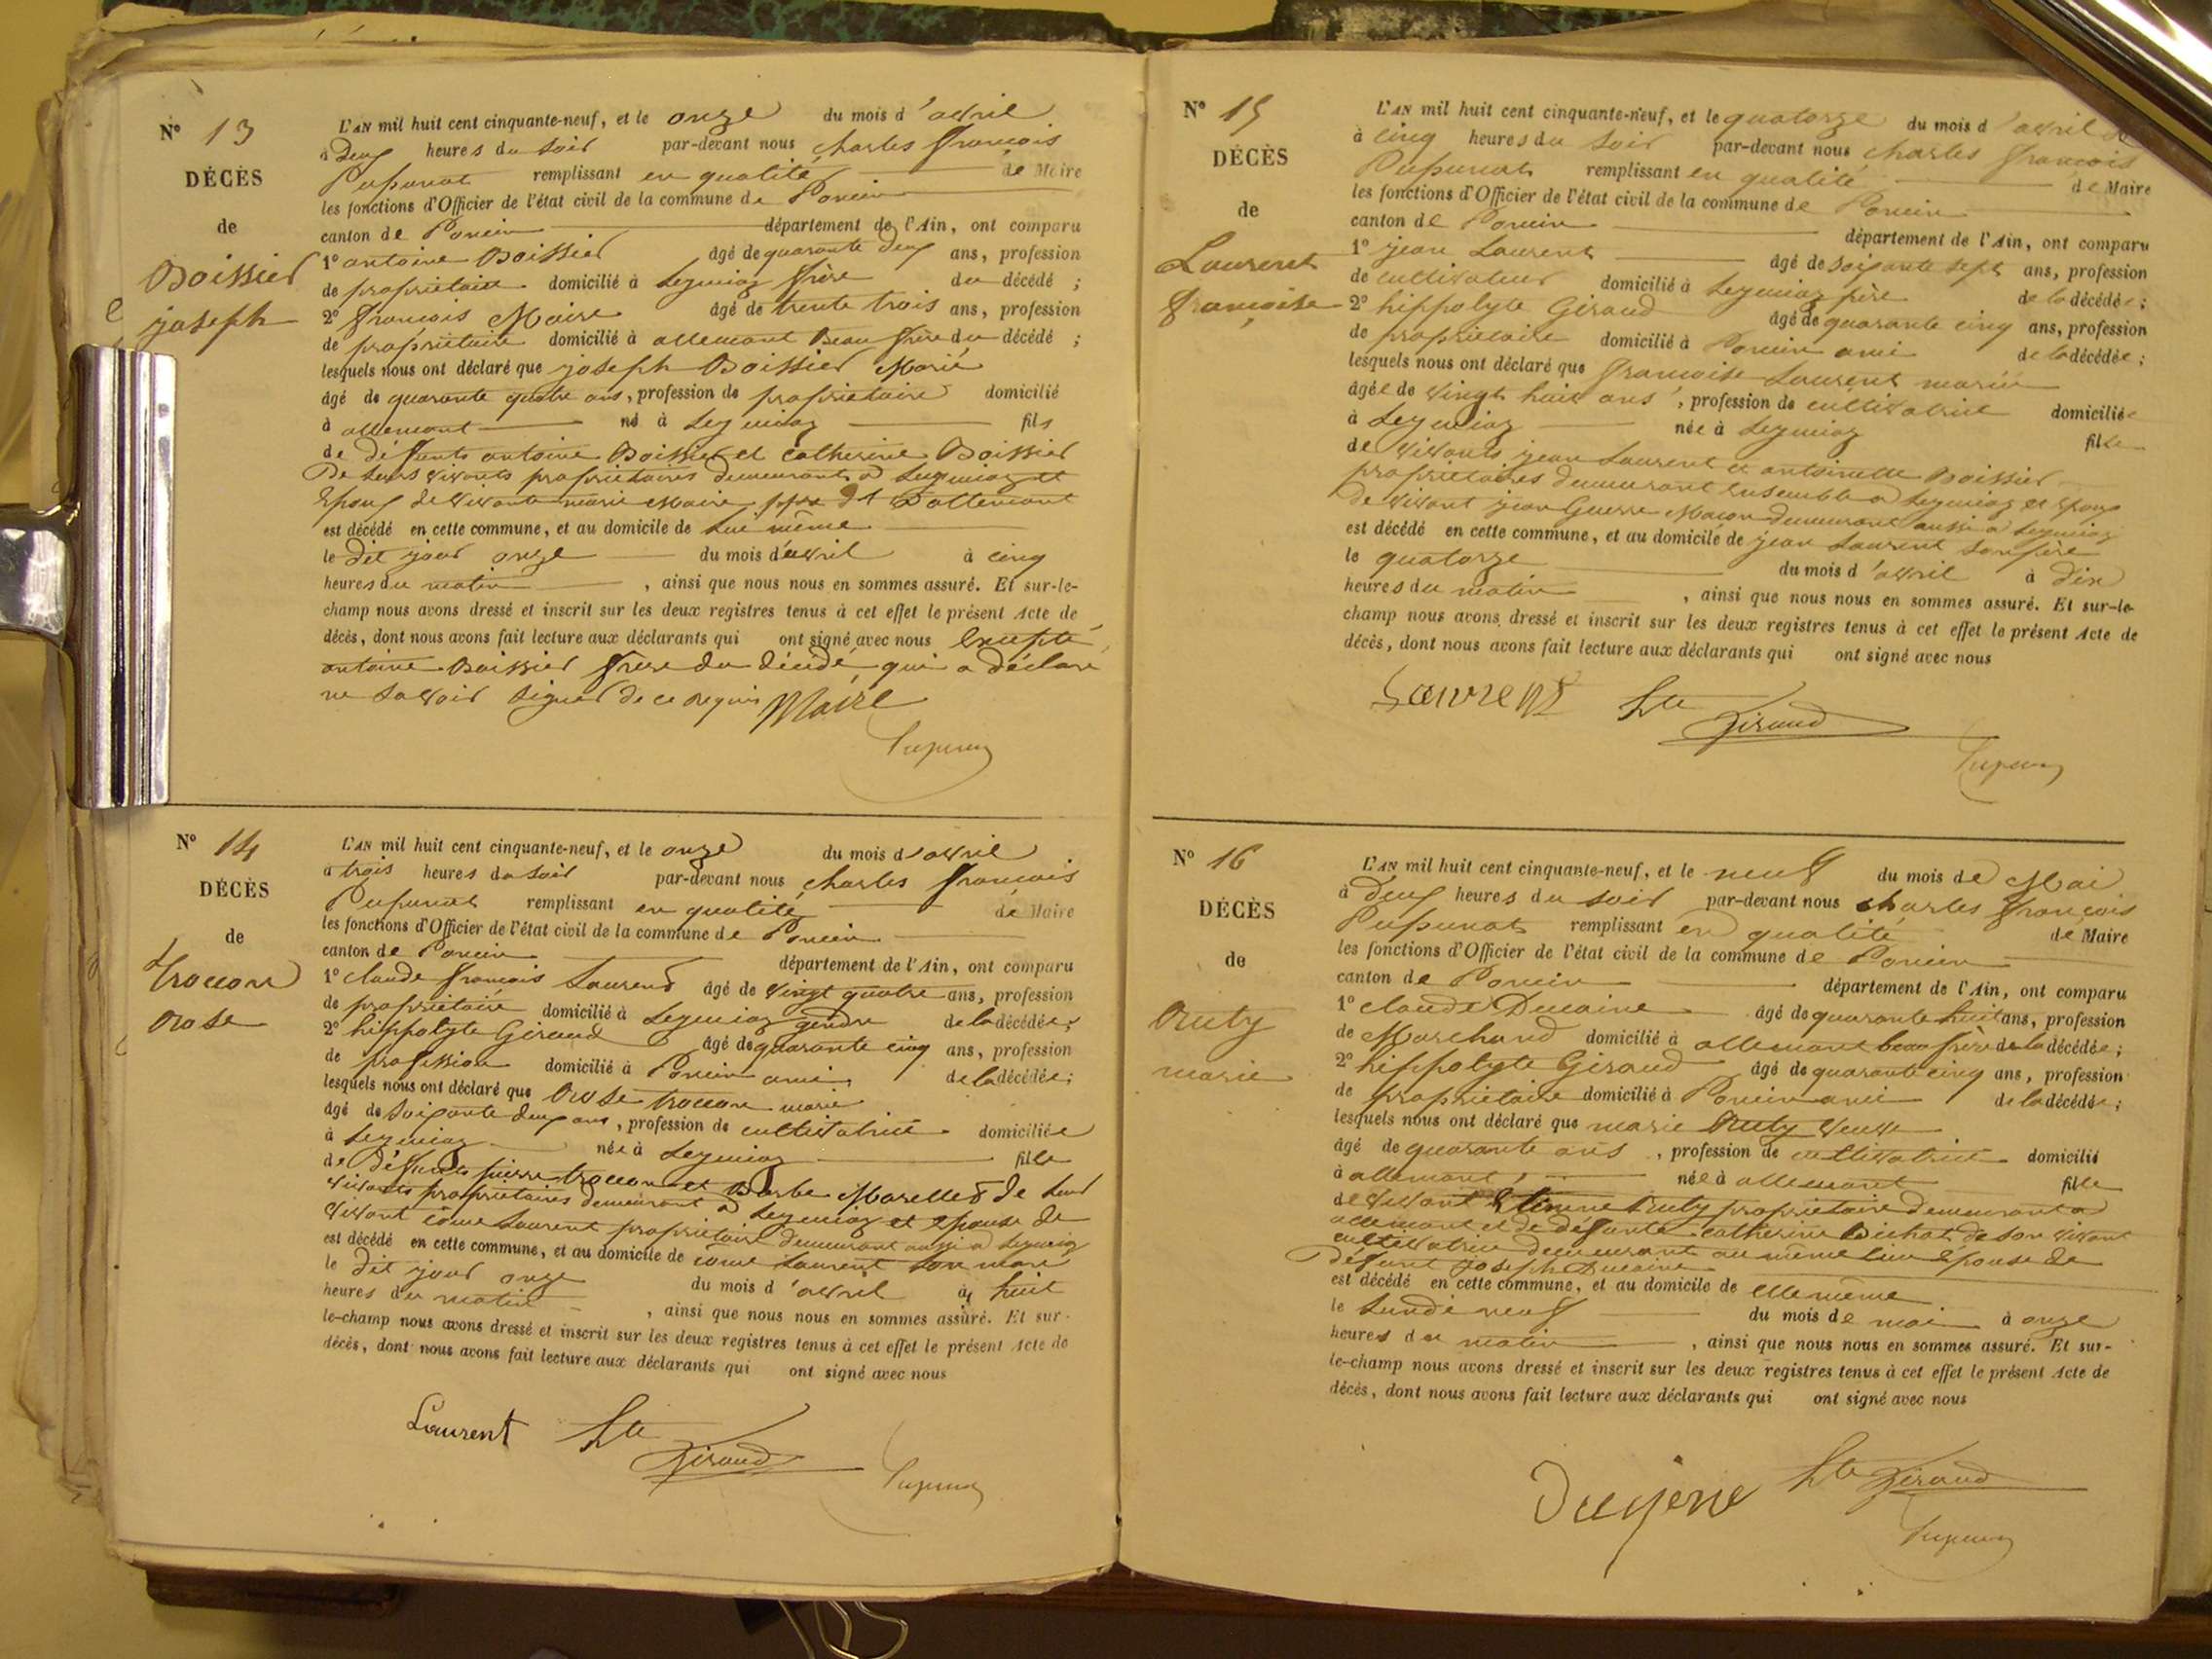 N° 13
DÉCÈS
de
Boissier
joseph
L'AN mil huit cent cinquante-neuf, et le onze du mois d'avril
à deux heures du soir par-devant nous charles françois
Pupunat remplissant en qualité de Maire
les fonctions d'Officier de l'état civil de la commune de Poncin
canton de Poncin département de l'Ain, ont comparu
1° antoine Boissier âgé de quarante deux ans, profession
de propriétaire domicilié à Leymiaz frère du décédé ;
2° françois Maire âgé de trente trois ans, profession
de propriétaire domicilié à allement Beau frère du décédé ;
lesquels nous ont déclaré que joseph Boissier Marié
âgé de quarante quatre ans, profession de propriétaire domicilié
à allement né à Leymiaz fils
de défunts antoine Boissier et catherine Boissier
De leurs vivants propriétaires demeurants à Leymiaz et
Epoux de vivante marie Maire d'allement
est décédé en cette commune, et au domicile de lui même
le dit jour onze du mois d'avril à cinq
heures du matin, ainsi que nous nous en sommes assuré. Et sur-le-
champ nous avons dressé et inscrit sur les deux registres tenus à cet effet le présent Acte de
décès, dont nous avons fait lecture aux déclarants qui ont signé avec nous excepté
antoine Boissier frère du décédé qui a déclaré
ne savoir signer de ce requis Maire
Pupunat
N° 14
DÉCÈS
de
troccon
Rose
L'AN mil huit cent cinquante-neuf, et le onze du mois d'avril
à trois heures du soir par-devant nous charles françois
Pupunat remplissant en qualité de Maire
les fonctions d'Officier de l'état civil de la commune de Poncin
canton de Poncin département de l'Ain, ont comparu
1° claude françois Laurent âgé de vingt quatre ans, profession
de propriétaire domicilié à Leymiaz gendre de la décédée ;
2° hippolyte Giraud âgé de quarante cinq ans, profession
de profession domicilié à Poncin ami de la décédée ;
lesquels nous ont déclaré que Rose troccon marie
âgé de soixante deux ans, profession de cultivatrice domiciliée
à Leymiaz née à Leymiaz fille
de défunts pierre troccon et Barbe Marellet de leur
vivants propriétaires demeurant à Leymiaz et epouse de
vivant côme Laurent propriétaire demeurant aussi à Leymiaz
est décédé en cette commune, et au domicile de côme Laurent son mari
le dit jour onze du mois d'avril à huit
heures du matin, ainsi que nous nous en sommes assuré. Et sur-
le-champ nous avons dressé et inscrit sur les deux registres tenus à cet effet le présent Acte de
décès, dont nous avons fait lecture aux déclarants qui ont signé avec nous
Laurent hte Giraud
Pupunat
N° 15
DÉCÈS
de
Laurent
françoise
L'AN mil huit cent cinquante-neuf, et le quatorze du mois d'avril
à cinq heures du soir par-devant nous charles françois
Pupunat remplissant en qualité de Maire
les fonctions d'Officier de l'état civil de la commune de Poncin
canton de Poncin département de l'Ain, ont comparu
1° jean Laurent âgé de soixante sept ans, profession
de cultivateur domicilié à Leymiaz père de la décédée ;
2° hippolyte Giraud âgé de quarante cinq ans, profession
de propriétaire domicilié à Poncin ami de la décédée ;
lesquels nous ont déclaré que françoise Laurent mariée
âgée de vingt huit ans, profession de cultivatrice domiciliée
à Leymiaz née à Leymiaz fille
de vivants jean Laurent et antoinette Boissier
propriétaires demeurant ensemble à Leymiaz et epouse
de vivant jean Guerre Maçon demeurant aussi à Leymiaz
est décédé en cette commune, et au domicile de jean Laurent son père
le quatorze du mois d'avril à dix
heures du matin, ainsi que nous nous en sommes assuré. Et sur-le-
champ nous avons dressé et inscrit sur les deux registres tenus à cet effet le présent Acte de
décès, dont nous avons fait lecture aux déclarants qui ont signé avec nous
Laurent hte Giraud
Pupunat
N° 16
DÉCÈS
de
Ruty
marie
L'AN mil huit cent cinquante-neuf, et le neuf du mois de Mai
à deux heures du soir par-devant nous charles françois
Pupunat remplissant en qualité de Maire
les fonctions d'Officier de l'état civil de la commune de Poncin
canton de Poncin département de l'Ain, ont comparu
1° claude Ducaine âgé de quarante huit ans, profession
de Marchand domicilié à allement beau frère de la décédée ;
2° hippolyte Giraud âgé de quarante cinq ans, profession
de propriétaire domicilié à Poncin ami de la décédée ;
lesquels nous ont déclaré que marie Ruty veuve
âgé de quarante ans, profession de cultivatrice domicilié
à allement, née à allement fille
de vivant Etienne Ruty propriétaire demeurant à
allement et de défunte catherine Bichat de son vivant
cultivatrice demeurant au même lieu epouse de
défunt joseph Ducaine
est décédé en cette commune, et au domicile de elle même
le Lundi neuf du mois de mai à onze
heures du matin, ainsi que nous nous en sommes assuré. Et sur-
le-champ nous avons dressé et inscrit sur les deux registres tenus à cet effet le présent Acte de
décès, dont nous avons fait lecture aux déclarants qui ont signé avec nous
hte Giraud
Pupunat